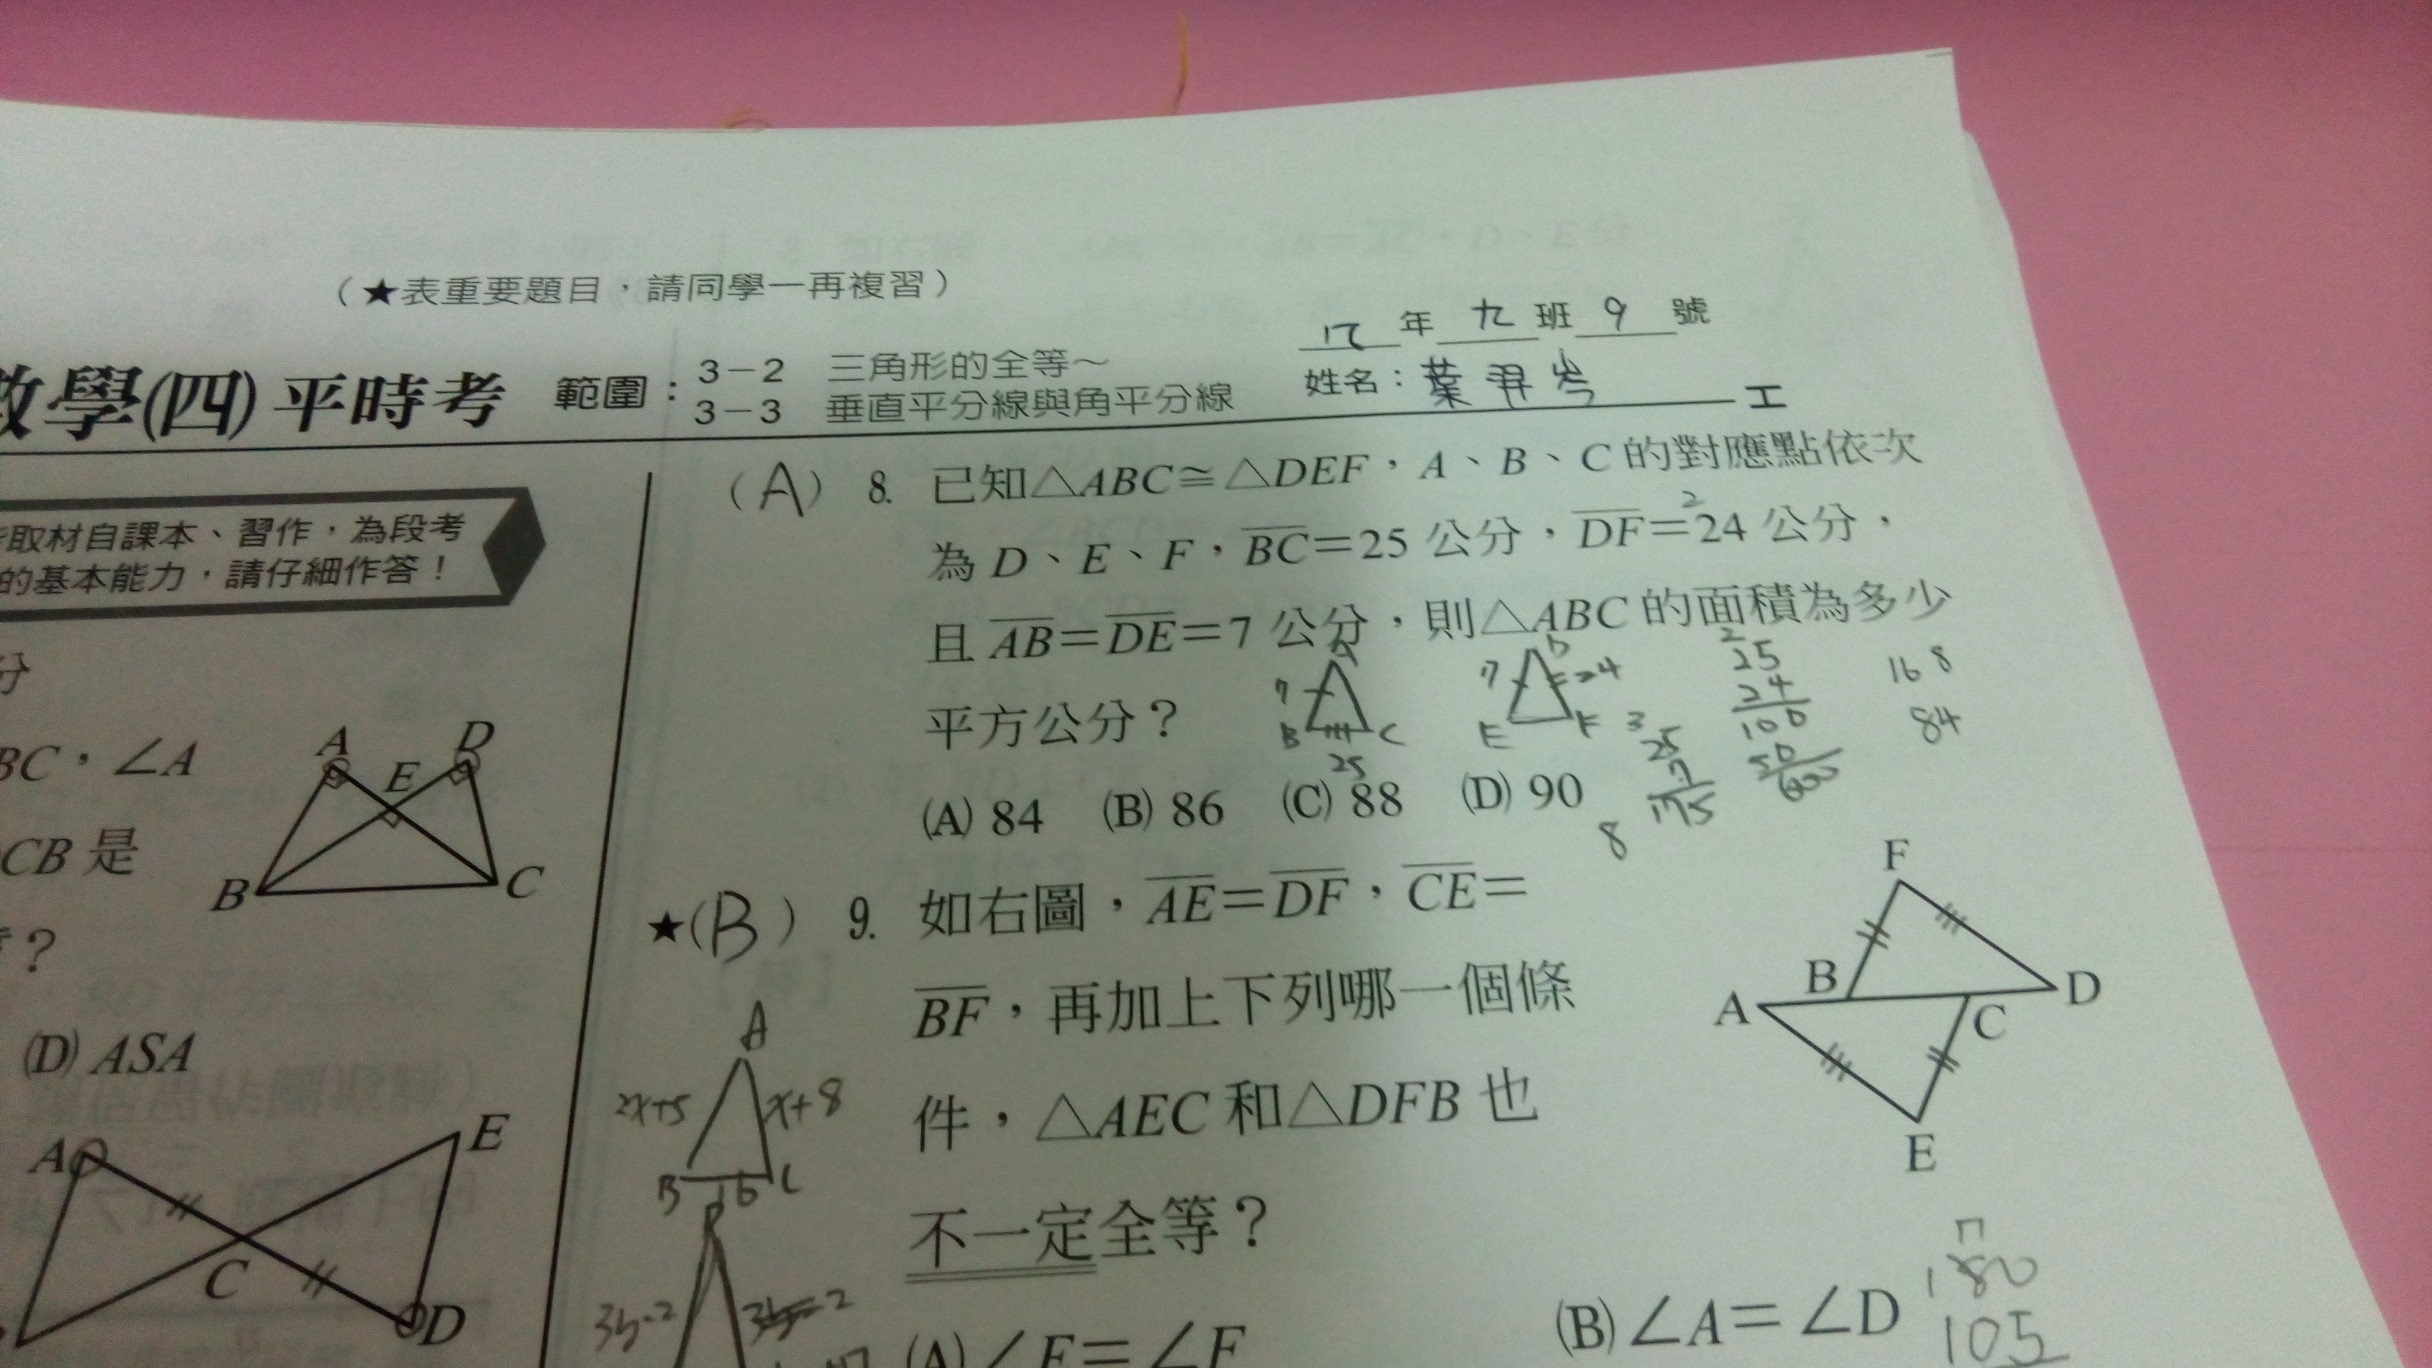 （★表重要題目，請同學一再複習）
年 九 班 9 號
數學(四) 平時考 範圍：3－2 三角形的全等～
3－3 垂直平分線與角平分線
姓名：葉羿岑
取材自課本、習作，為段考
的基本能力，請仔細作答！
分
BC，∠A
CB 是
？
(D) ASA
A
D
E
B
C
A
E
C
D
(A) 8. 已知△ABC≅△DEF，A、B、C 的對應點依次
為 D、E、F，BC＝25 公分，DF＝24 公分，
且 AB＝DE＝7 公分，則△ABC 的面積為多少
平方公分？
(A) 84 (B) 86 (C) 88 (D) 90
7
B C
25
7 24
E F
25
7
175
2
25
24
100
50
600
168
84
8
★(B) 9. 如右圖，AE＝DF，CE＝
BF，再加上下列哪一個條
件，△AEC 和△DFB 也
不一定全等？
(A) ∠E＝∠F
(B) ∠A＝∠D
F
B
D
A
C
E
A
2x+5 x+8
B C
3y-2
180
105